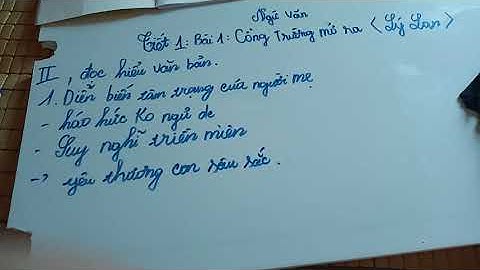 Ngữ văn
Tiết 1: Bài 1: Cổng Trường mở ra < Lý Lan >
II, đọc hiểu văn bản.
1. Diễn biến tâm trạng của người mẹ
- háo hức ko ngủ dc
- Suy nghĩ triền miên
-> yêu thương con sâu sắc.